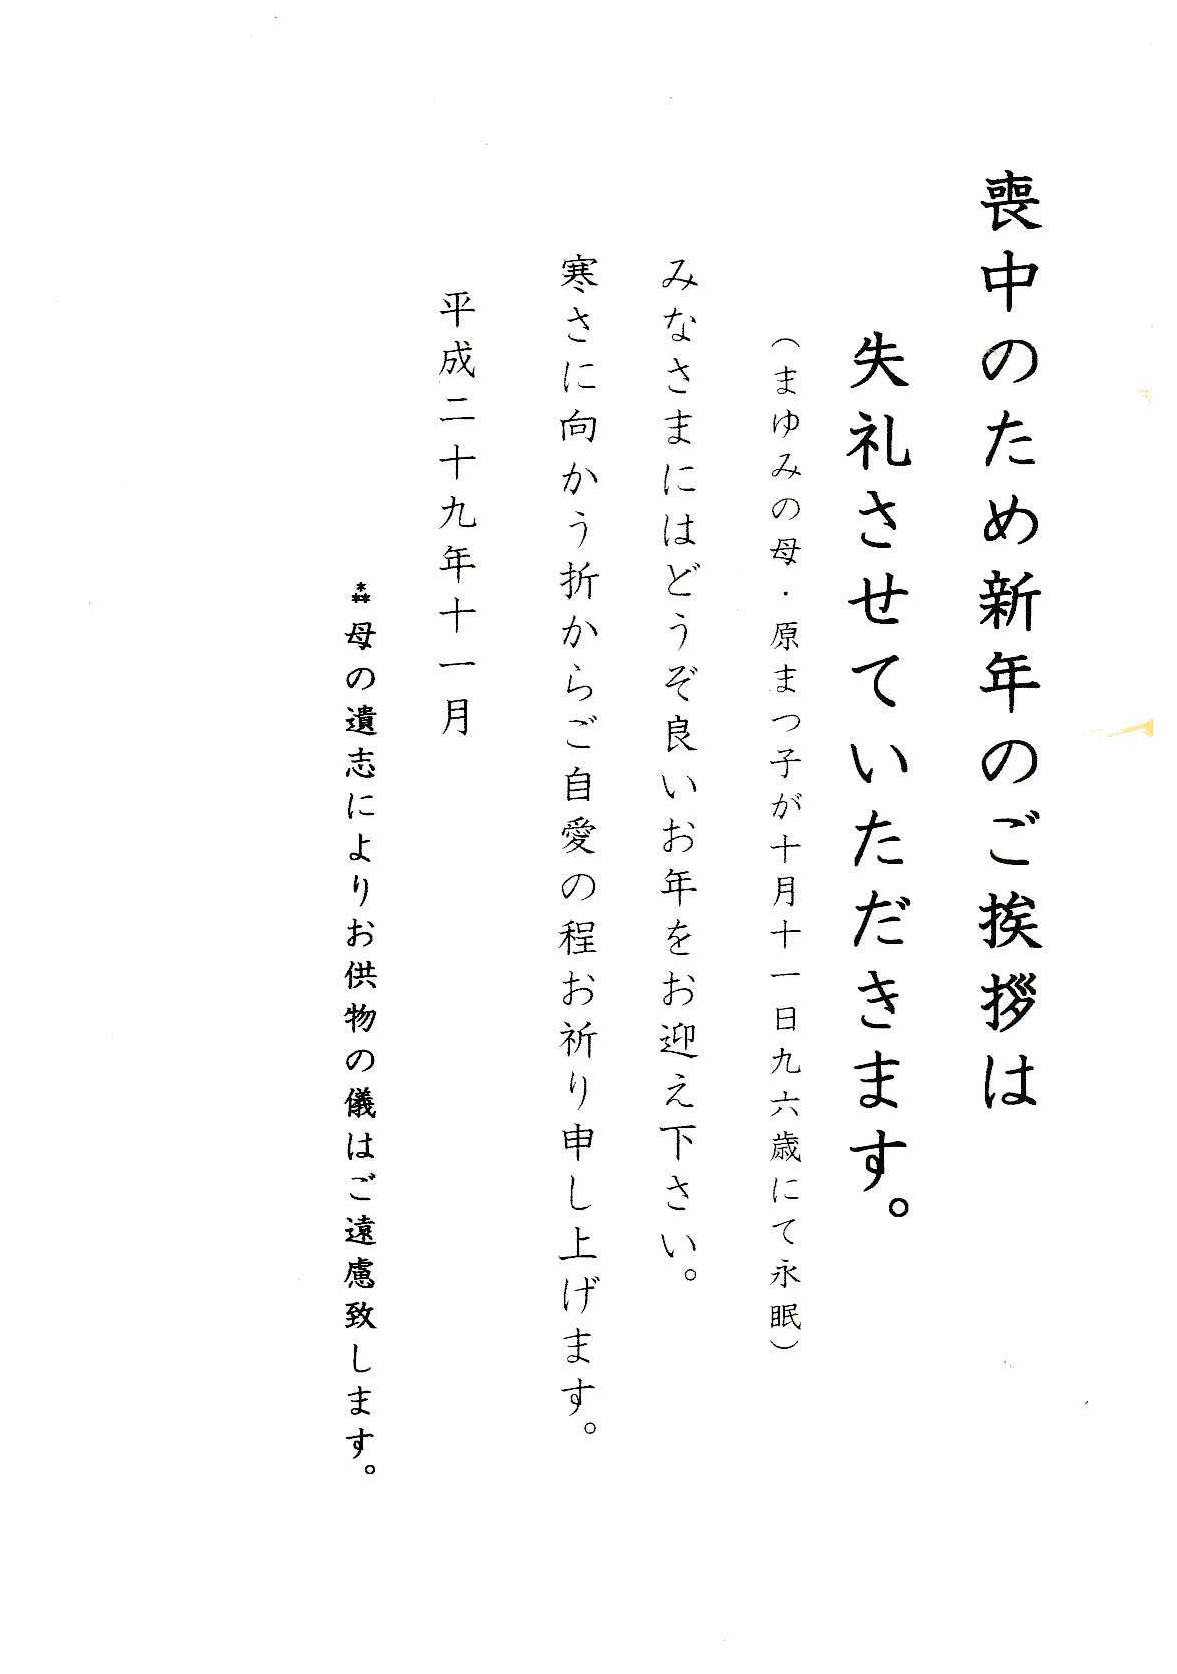 喪中のため新年のご挨拶は
失礼させていただきます。
（まゆみの母・原まつ子が十月十一日九六歳にて永眠）
みなさまにはどうぞ良いお年をお迎え下さい。
寒さに向かう折からご自愛の程お祈り申し上げます。
平成二十九年十一月
⁂母の遺志によりお供物の儀はご遠慮致します。